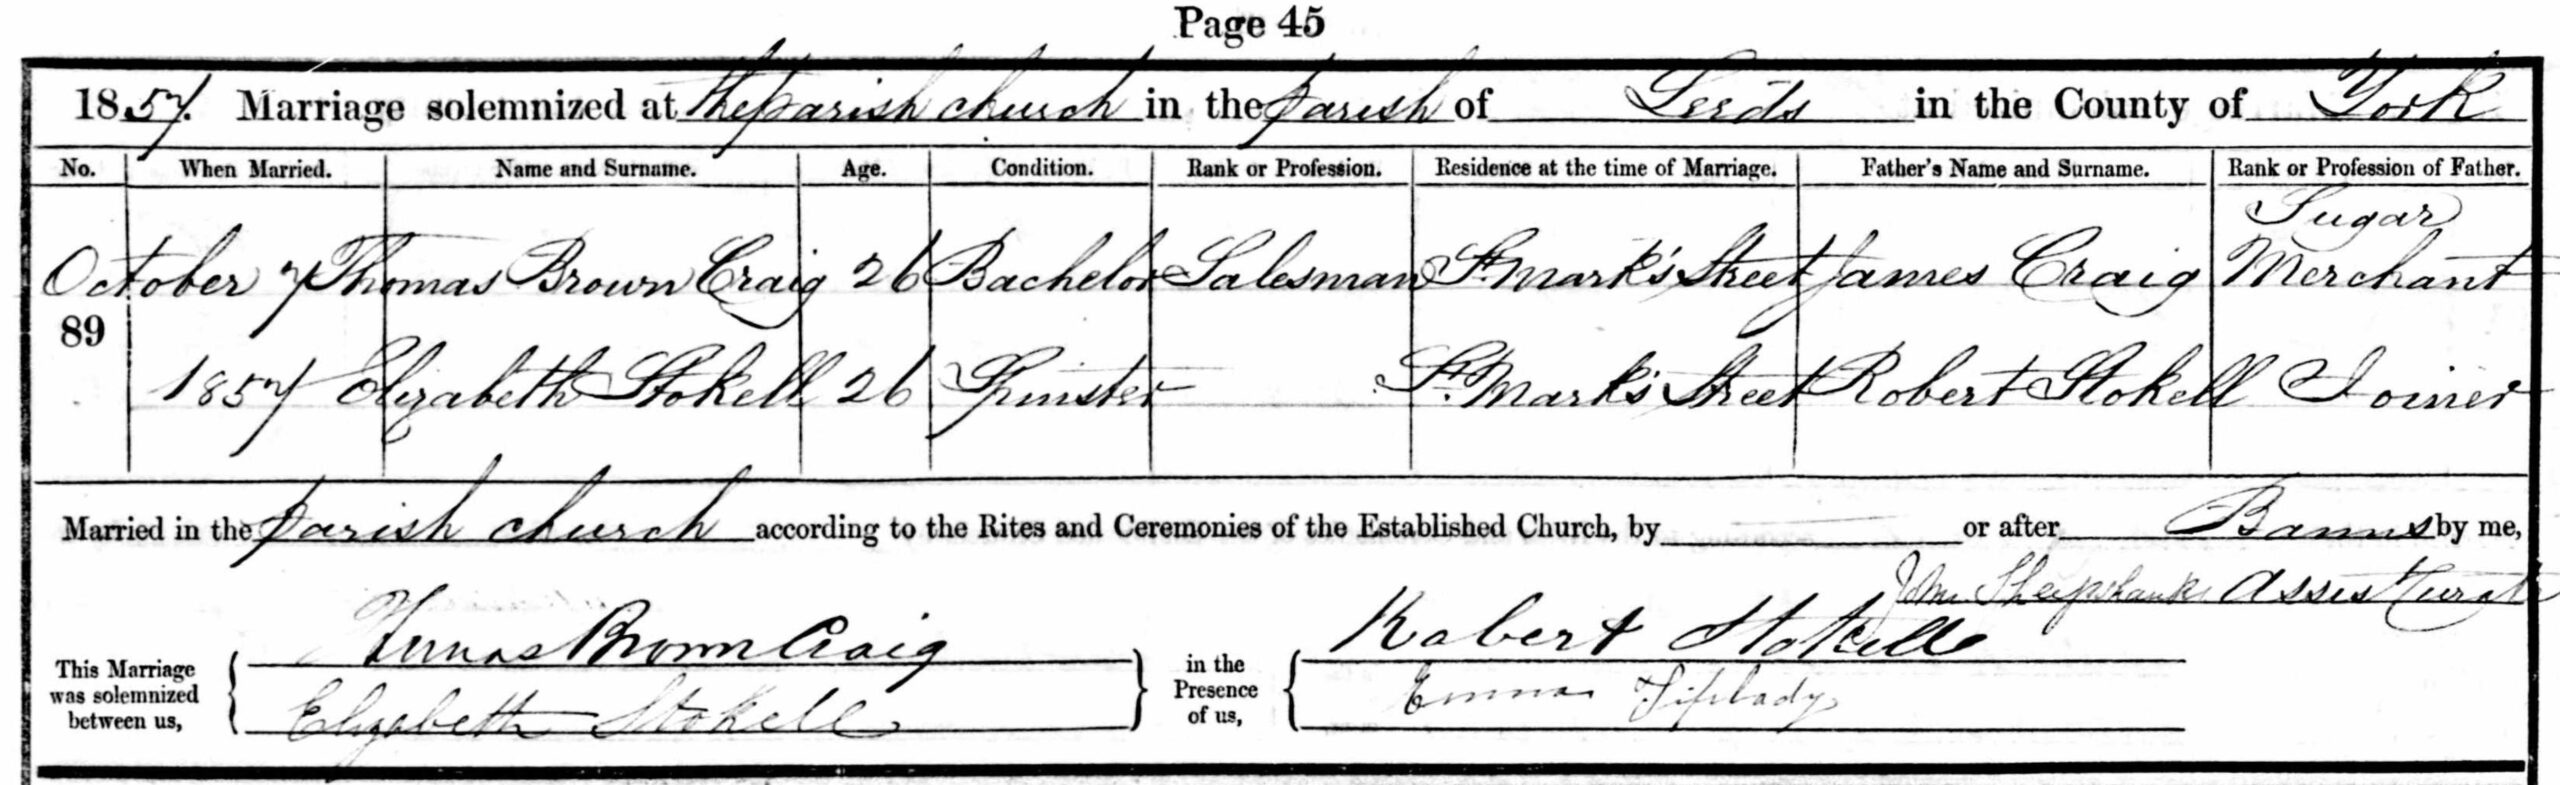 Page 45
1857. Marriage solemnized at the parish church in the parish of Leeds in the County of York
No. When Married. Name and Surname. Age. Condition. Rank or Profession. Residence at the time of Marriage. Father's Name and Surname. Rank or Profession of Father.
Sugar
October 7 Thomas Brown Craig 26 Bachelor Salesman St. Mark's Street James Craig Merchant
89
1857 Elizabeth Stokell 26 Spinster St. Mark's Street Robert Stokell Joiner
Married in the parish church according to the Rites and Ceremonies of the Established Church, by or after Banns by me,
John Sheepshanks Assist Curate
This Marriage was solemnized between us,
Thomas Brown Craig
Elizabeth Stokell
in the Presence of us,
Robert Stokell
Emma Tiplady